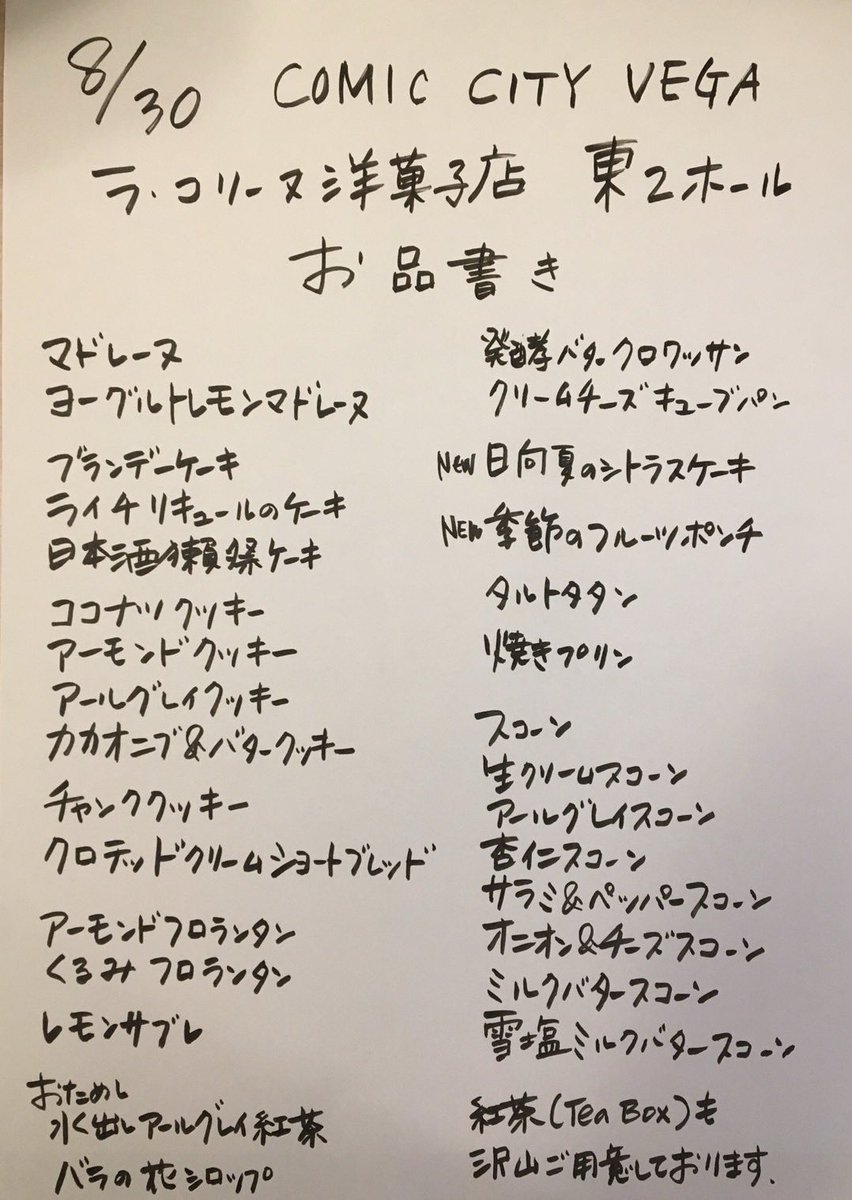 8/30 COMIC CITY VEGA
ラ・コリーヌ洋菓子店 東2ホール
お品書き
マドレーヌ
ヨーグルトレモンマドレーヌ
ブランデーケーキ
ライチリキュールのケーキ
日本酒獺祭ケーキ
ココナツクッキー
アーモンドクッキー
アールグレイクッキー
カカオニブ&バタークッキー
チャンククッキー
クロテッドクリームショートブレッド
アーモンドフロランタン
くるみフロランタン
レモンサブレ
おためし
水出しアールグレイ紅茶
バラの花シロップ
発酵バタークロワッサン
クリームチーズキューブパン
NEW 日向夏のシトラスケーキ
NEW 季節のフルーツポンチ
タルトタタン
焼きプリン
スコーン
生クリームスコーン
アールグレイスコーン
杏仁スコーン
サラミ&ペッパースコーン
オニオン&チーズスコーン
ミルクバタースコーン
雪塩ミルクバタースコーン
紅茶(Tea Box)も
沢山ご用意しております。